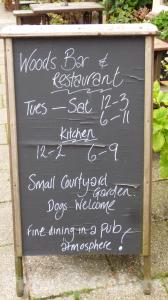 Woods Bar &
Restaurant
Tues — Sat 12-3
6-11
Kitchen
12-2 6-9
Small Courtyard
Garden.
Dogs Welcome
Fine dining in a Pub
atmosphere!